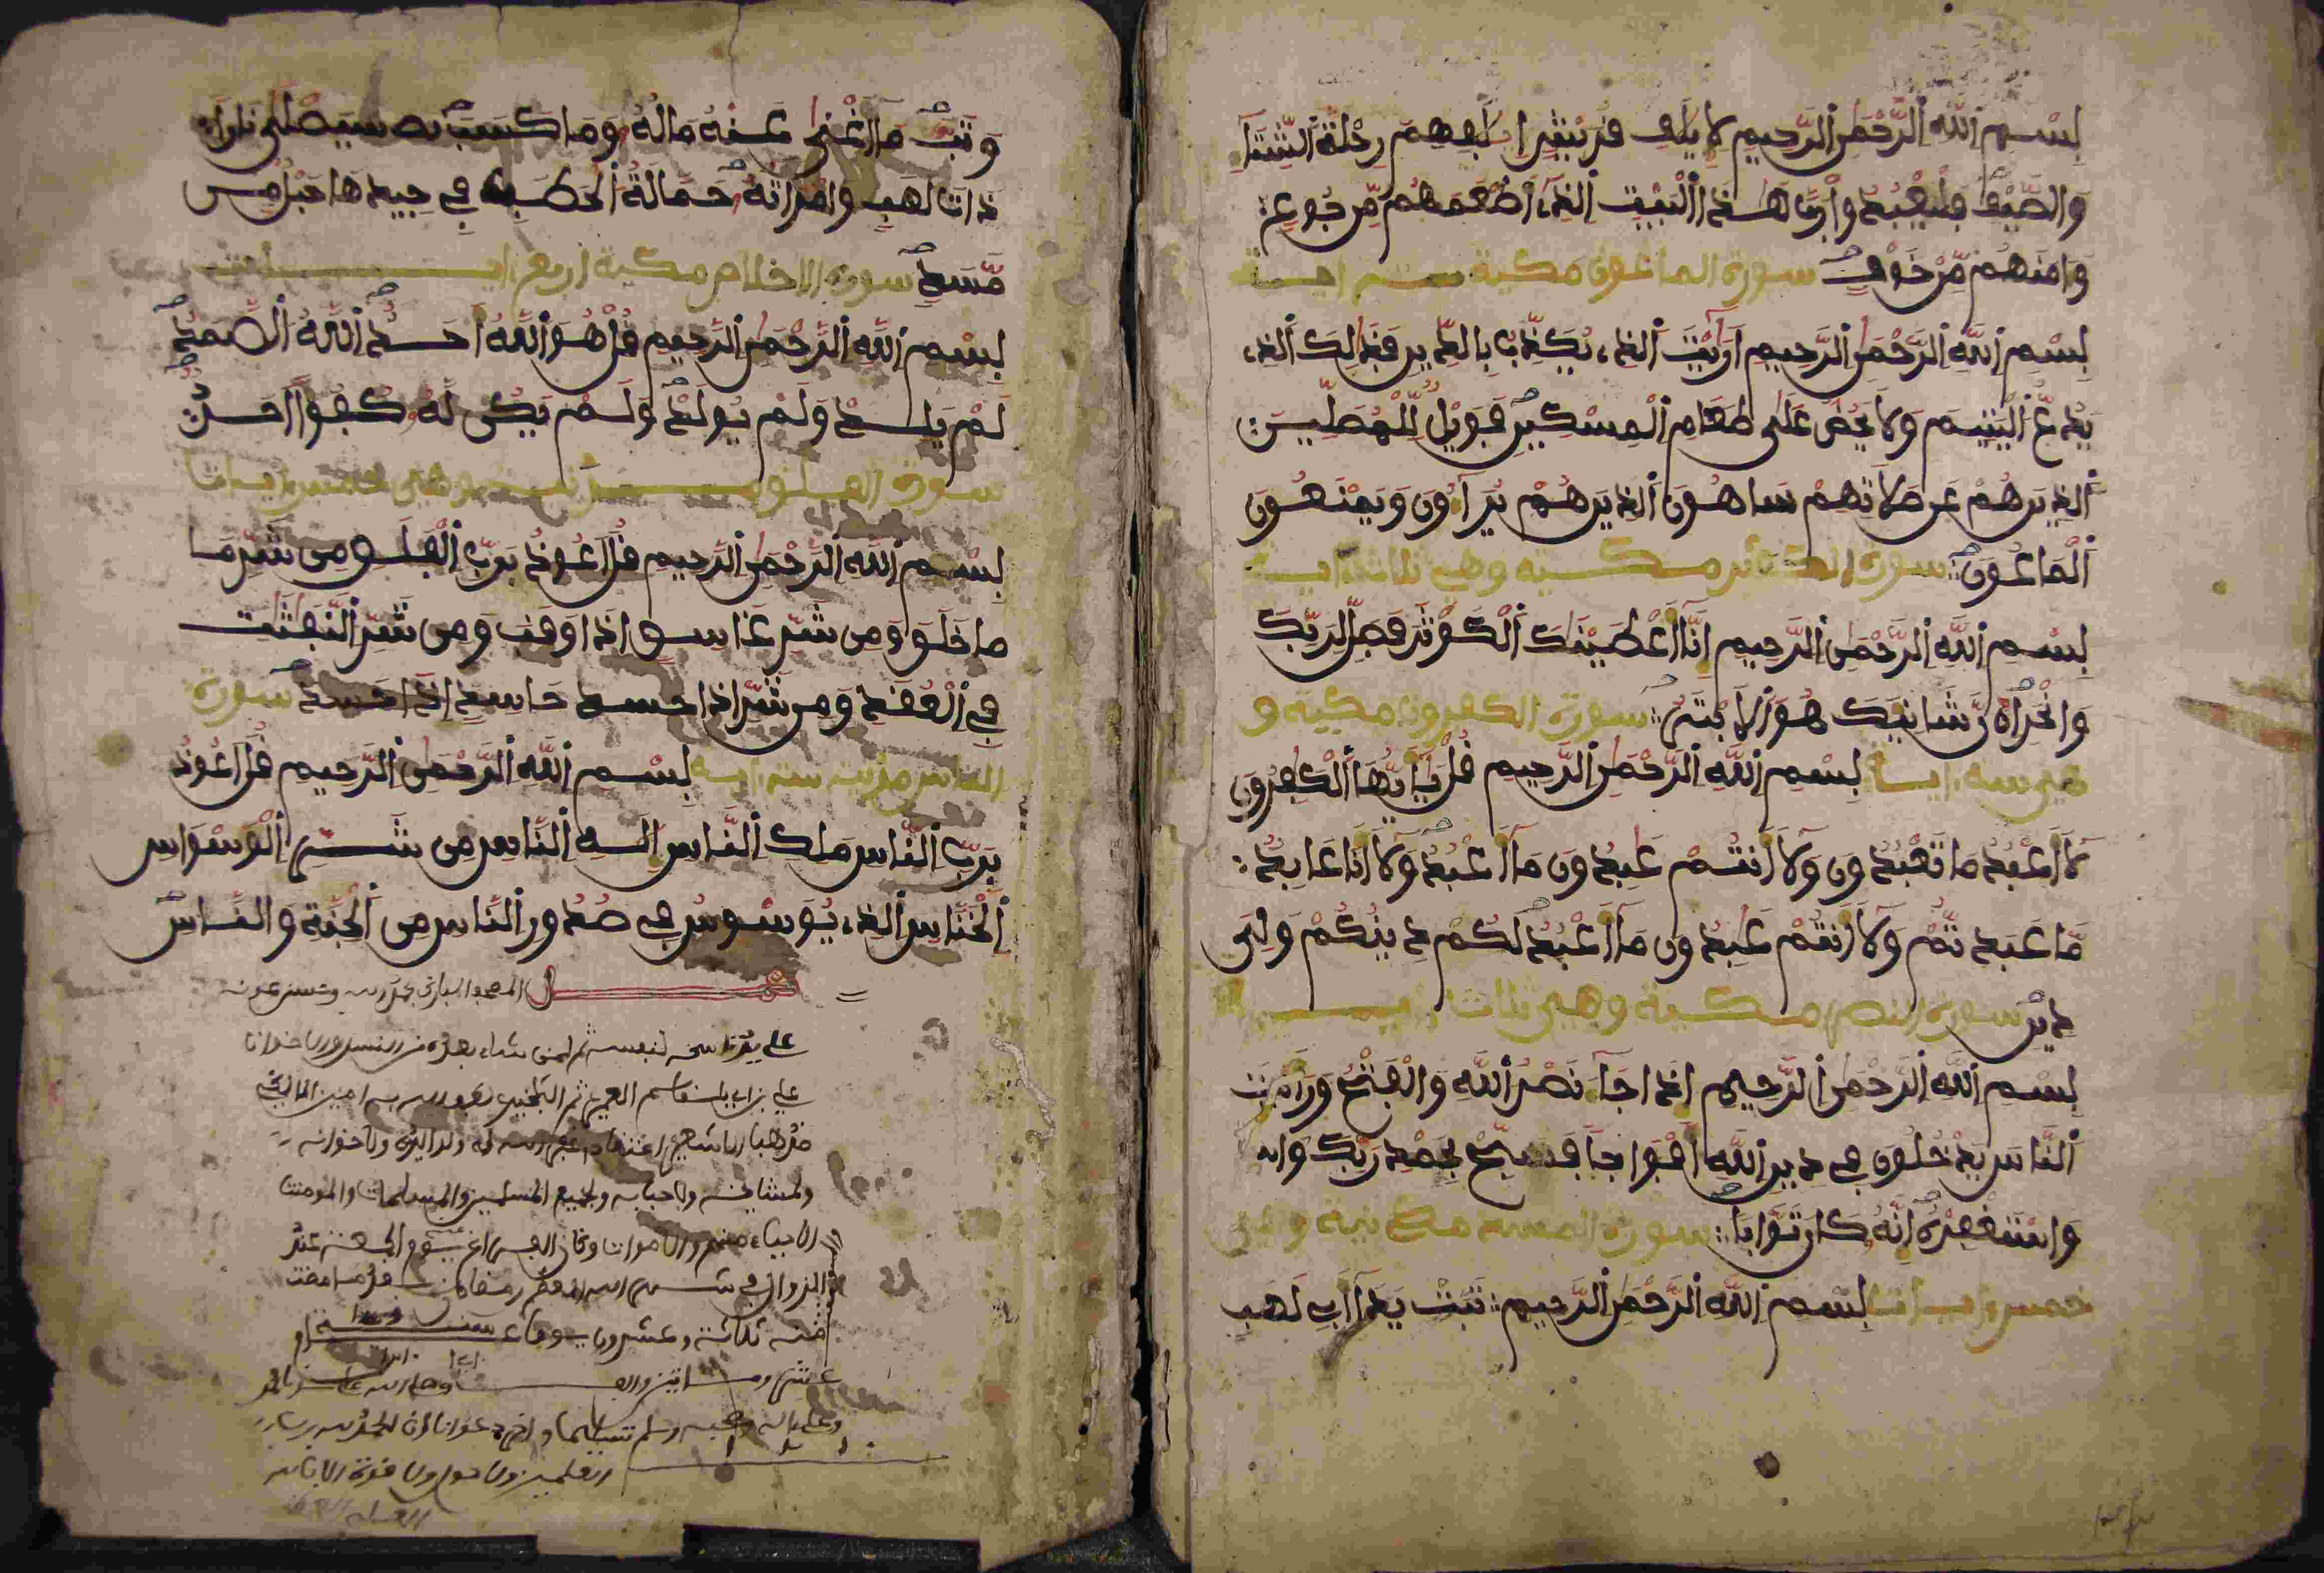 بسم الله الرحمن الرحيم لايلف قريش ايلفهم رحلة الشتاء
والصيف فليعبدوا رب هذا البيت الذي أطعمهم من جوع
وامنهم من خوف سورة الماعون مكية ست اية
بسم الله الرحمن الرحيم أريت الذي يكذب بالدين فذالك الذي
يدع اليتيم ولا يحض على طعام المسكين فويل للمصلين
الذين هم عن صلاتهم ساهون الذين هم يراءون ويمنعون
الماعون سورة الكوثر مكية وهي ثلاث اية
بسم الله الرحمن الرحيم انا أعطينك الكوثر فصل لربك
وانحر ان شانئك هو الابتر سورة الكفرون مكية و
هي ست اية بسم الله الرحمن الرحيم قل يأيها الكفرون
لا أعبد ما تعبدون ولا أنتم عبدون ما أعبد ولا أنا عابد
ما عبدتم ولا أنتم عبدون ما أعبد لكم دينكم ولي
دين سورة النصر مكية وهي ثلاث اية
بسم الله الرحمن الرحيم اذا جاء نصر الله والفتح ورأيت
الناس يدخلون في دين الله أفواجا فسبح بحمد ربك وا
واستغفره انه كان توابا سورة المسد مكية وهي
خمس ايات بسم الله الرحمن الرحيم تبت يدا أبي لهب
وتب ما أغنى عنه ماله وما كسب سيصلى نارا
ذات لهب وامرأته حمالة الحطب في جيدها حبل من
مسد سورة الاخلاص مكية اربع ايات
بسم الله الرحمن الرحيم قل هو الله أحد الله الصمد
لم يلد ولم يولد ولم يكن له كفوا أحد
سورة الفلق وهي خمس ايات
بسم الله الرحمن الرحيم قل أعوذ برب الفلق من شر ما
ما خلق ومن شر غاسق اذا وقب ومن شر النفثت
في العقد ومن شر اذا حسد حاسد إذا حسد سورة
الناس مدنية ستة اية بسم الله الرحمن الرحيم قل أعوذ
برب الناس ملك الناس اله الناس من شر الوسواس
الخناس الذي يوسوس في صدور الناس من الجنة والناس
المبارك بحمد الله وحسن عونه
على يد ناسخه لنفسه ثم لمن شاء بعده من
علي بن ابي القاسم
ولمشايخه ولاحبابه ولجميع المسلمين والمسلمات والمومنين
الاحياء منهم والاموات وكان الفراغ يوم الجمعة عند
الزوال في شهر الله المعظم رمضان
ثلاثة وعشرون يوما
وصلى الله على سيدنا محمد
وعلى اله وصحبه وسلم تسليما واخر دعوانا أن الحمد لله رب
العلمين ولا حول ولا قوة الا بالله
العلي العظيم